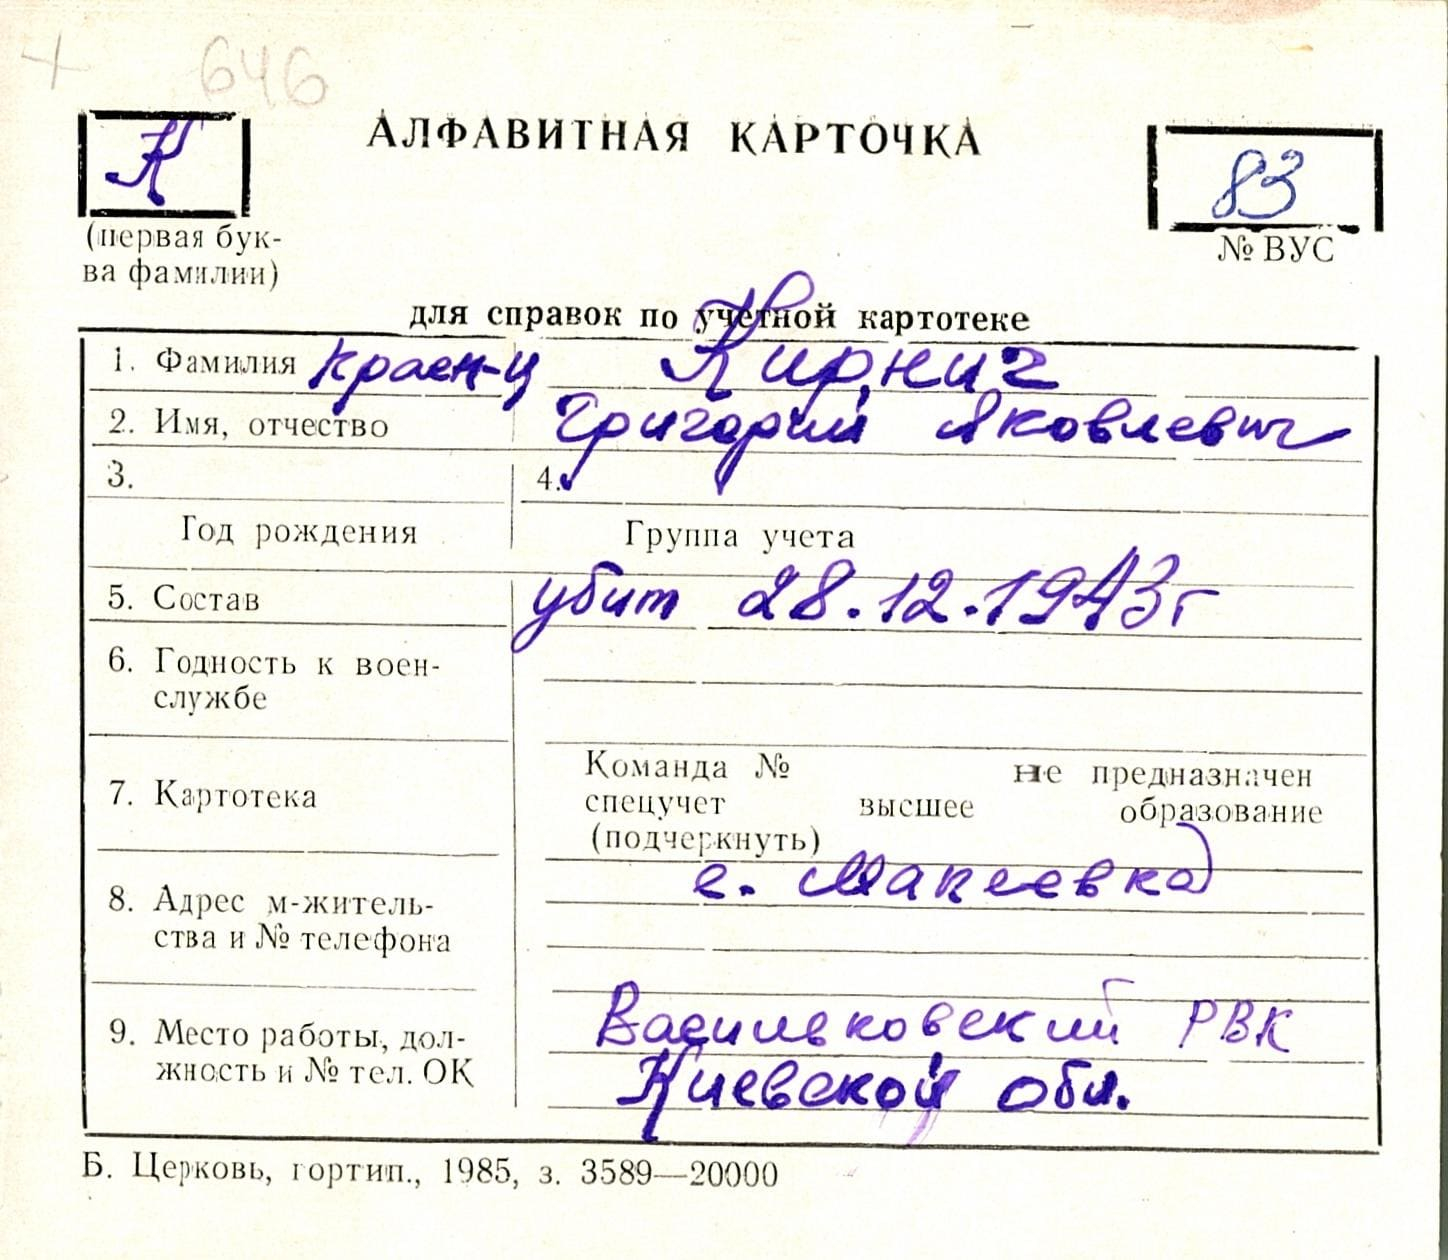 + 646
АЛФАВИТНАЯ КАРТОЧКА
К
83
(первая бук-
ва фамилии)
№ ВУС
для справок по учетной картотеке
1. Фамилия красн-ц Кирнич
2. Имя, отчество Григорий Яковлевич
3.
4.
Год рождения
Группа учета
5. Состав убит 28.12.1943г
6. Годность к воен-
службе
Команда № не предназначен
7. Картотека
спецучет высшее образование
(подчеркнуть)
с. Макеевка
8. Адрес м-житель-
ства и № телефона
Васильковский РВК
9. Место работы, дол-
жность и № тел. ОК
Киевской обл.
Б. Церковь, гортип., 1985, з. 3589—20000